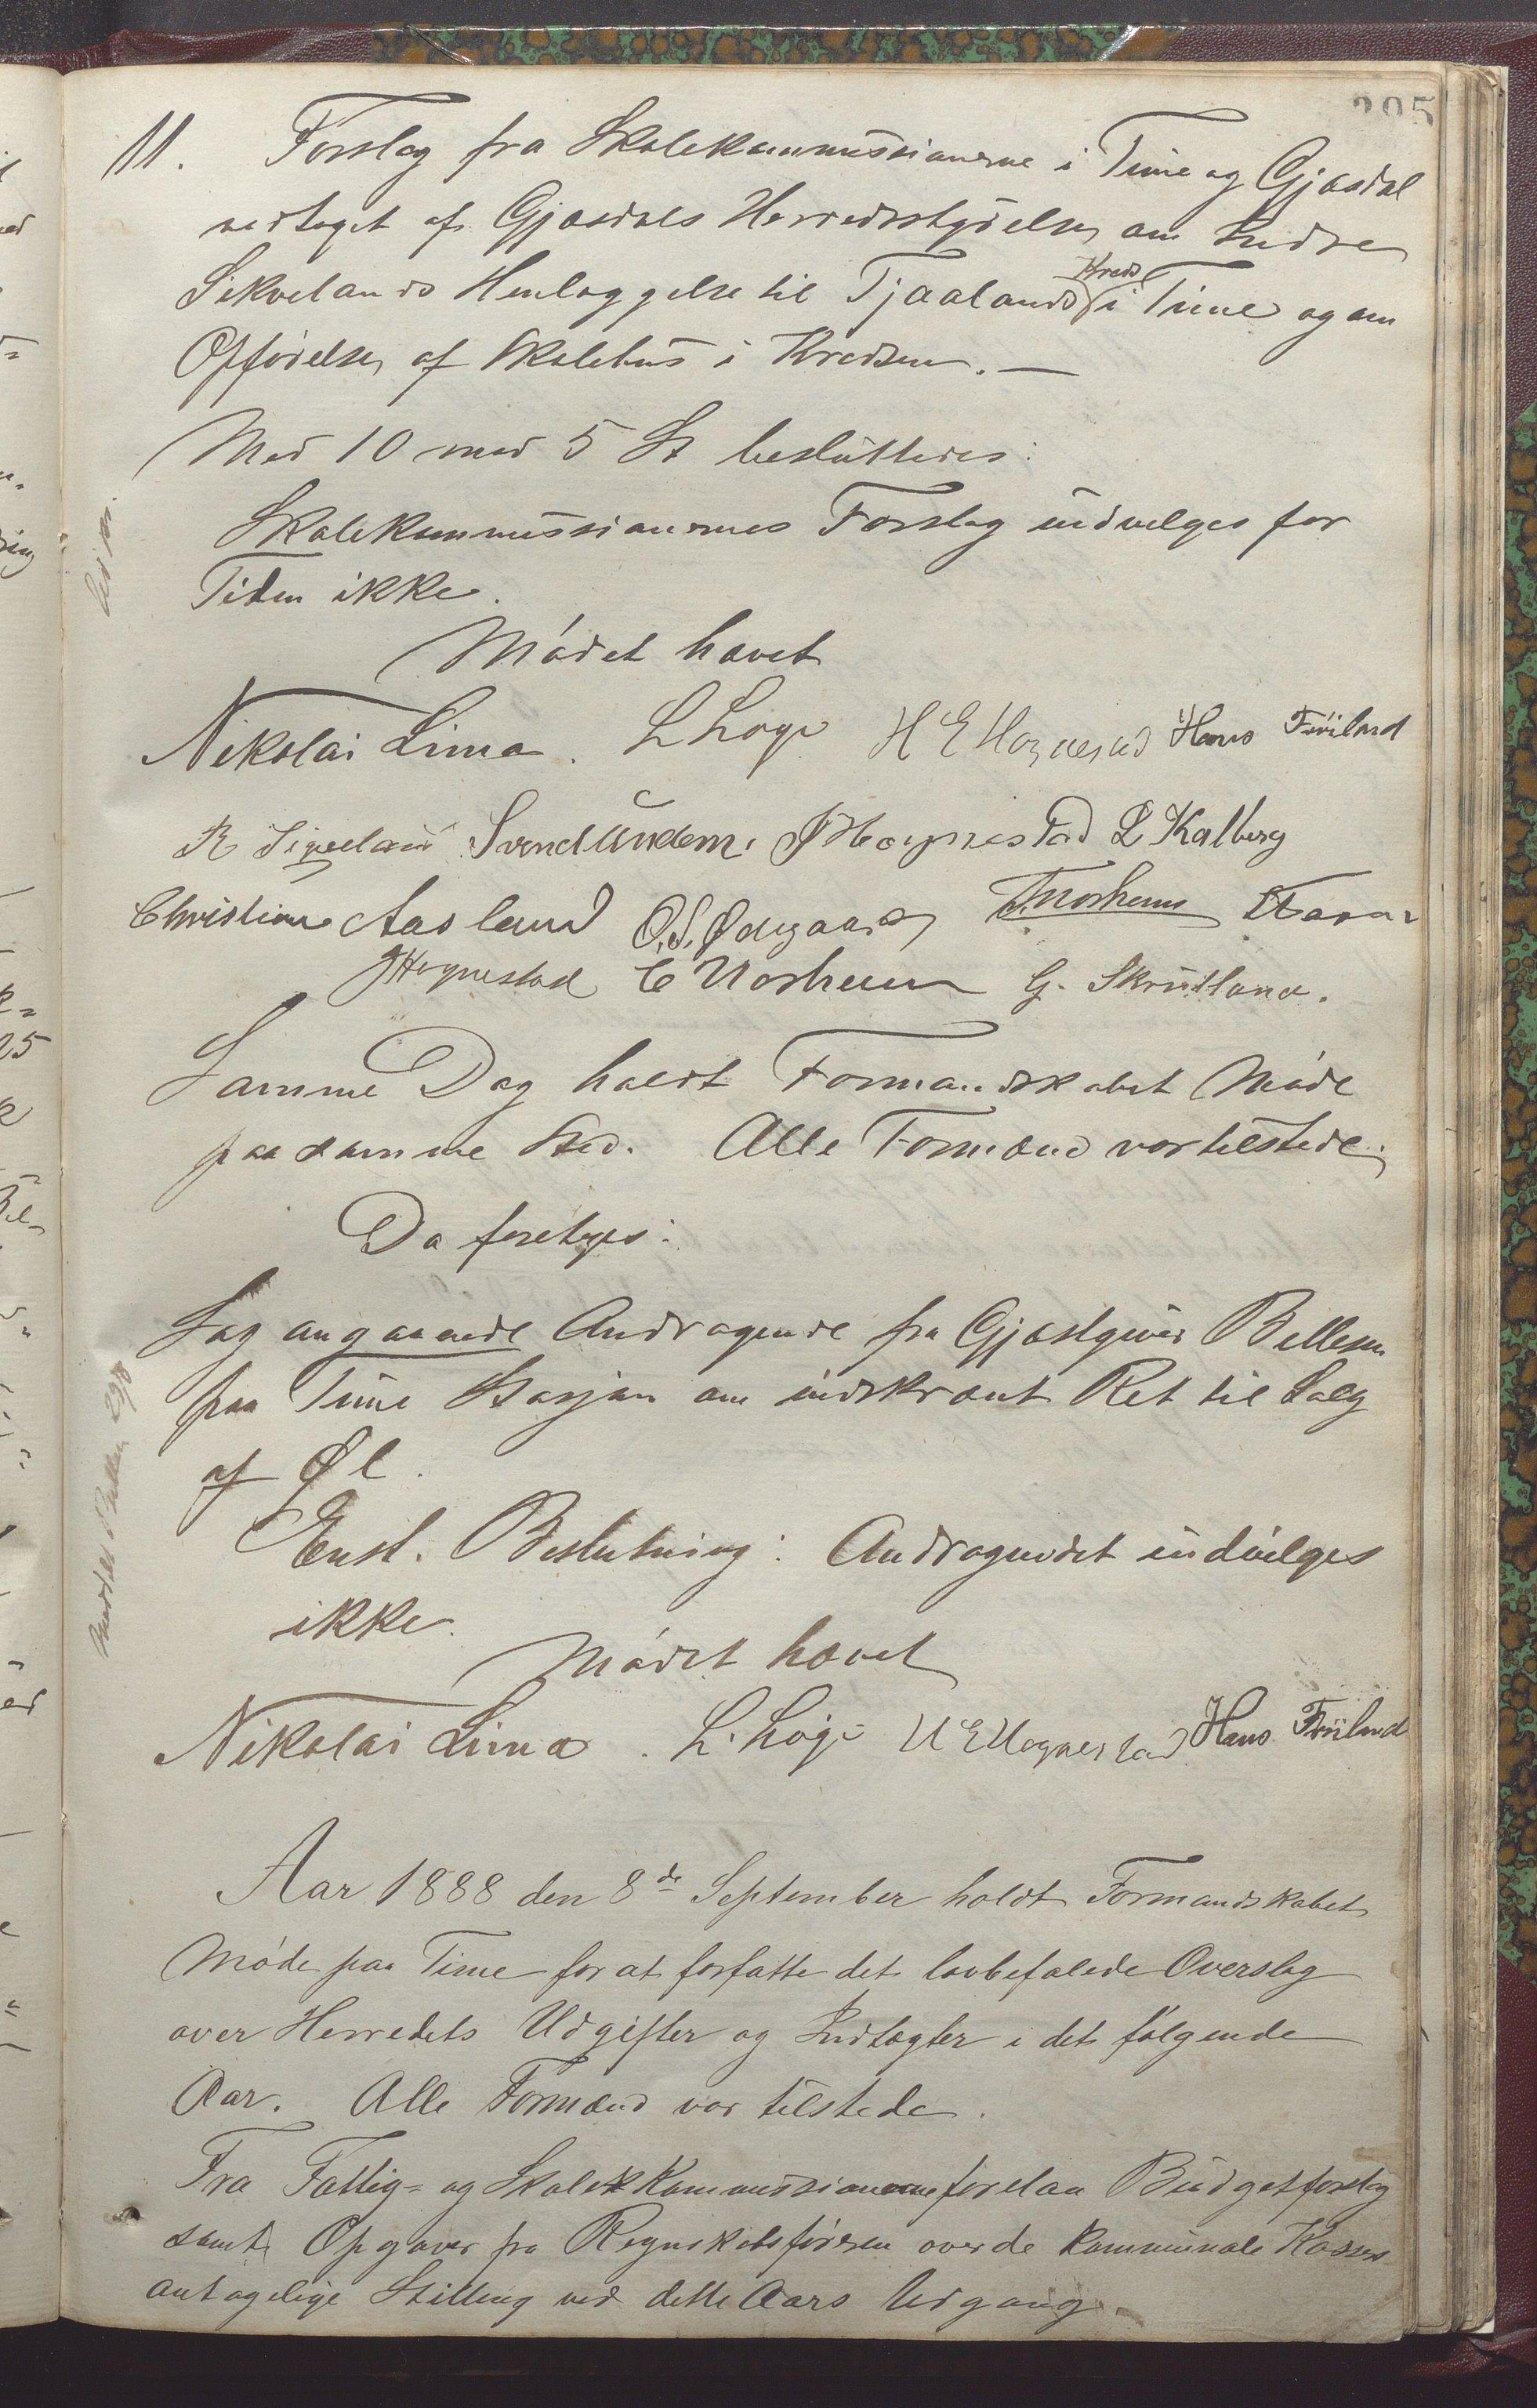 205
11. Forslag fra Skolekommissionerne i Time og Gjæsdal
vedtaget af Gjæsdals Herredsstyrelse, om Indre
Sikvelands Henlæggelse til Tjaalands Kreds i Time og om
Opførelse af Skolehus i Kredsen. —
Med 10 mod 5 St besluttedes:
Skolekommissionernes Forslag indvilges for
Tiden ikke.
Mødet hævet
Nikolai Lima. L Loge H E Hognestad Hans Frøiland
R Sigveland Svend Undem. J Hognestad L Kalberg
Christian Aasland O. S. Ødegaard T. Norheim
J Hognestad E Norheim G. Skrudland.
Samme Dag holdt Formandskabet Møde
paa samme Sted. Alle Formænd var tilstede.
Da foretoges:
Sag angaaende Andragende fra Gjæstgiver Bellesen
paa Time Stasjon om indskrænt Ret til Salg
af Øl.
Enst. Beslutning: Andragendet indvilges
ikke.
Mødet hævet
Nikolai Lima. L. Loge H E Hognestad Hans Frøiland
Aar 1888 den 8de September holdt Formandskabet
Møde paa Time for at forfatte det lovbefalede Overslag
over Herredets Udgifter og Indtægter i det følgende
Aar. Alle Formænd var tilstede.
Fra Fattig= og Skolekommissionerne forelaa Budgetforslag
samt Opgaver fra Regnskabsføreren over de kommunale Kassers
antagelige Stilling ved dette Aars Udgang.